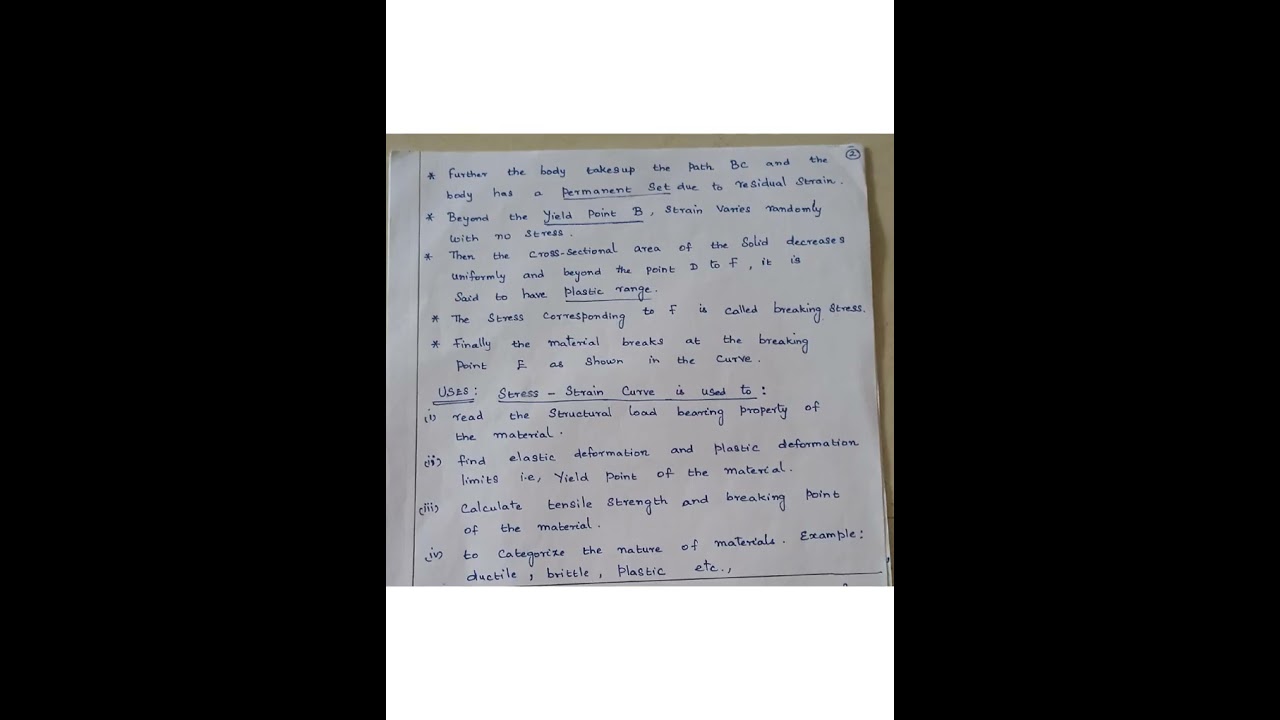 ②
* Further the body takesup the path BC and the
body has a permanent set due to residual strain.
* Beyond the Yield Point B, strain varies randomly
with no stress.
* Then the cross-sectional area of the solid decreases
uniformly and beyond the point D to F, it is
said to have plastic range.
* The stress corresponding to F is called breaking stress.
* Finally the material breaks at the breaking
point E as shown in the curve.
USES: Stress - Strain Curve is used to:
(i) read the structural load bearing property of
the material.
(ii) find elastic deformation and plastic deformation
limits i.e, Yield point of the material.
(iii) Calculate tensile strength and breaking point
of the material.
(iv) to categorize the nature of materials. Example:
ductile, brittle, plastic etc.,